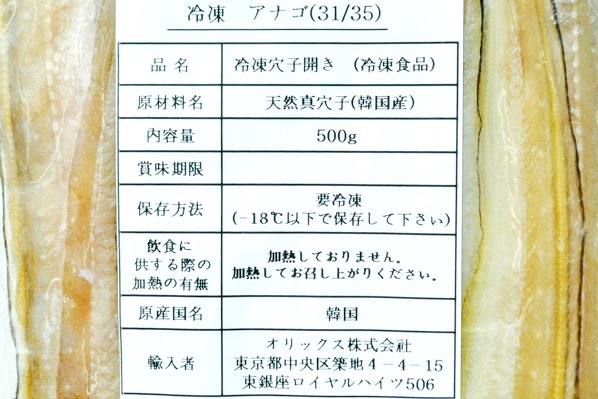 冷凍　アナゴ(31/35)
品名　冷凍穴子開き　(冷凍食品)
原材料名　天然真穴子(韓国産)
内容量　500g
賞味期限
保存方法　要冷凍
(-18℃以下で保存して下さい)
飲食に
供する際の
加熱の有無
加熱しておりません。
加熱してお召し上がりください。
原産国名　韓国
輸入者
オリックス株式会社
東京都中央区築地4-4-15
東銀座ロイヤルハイツ506